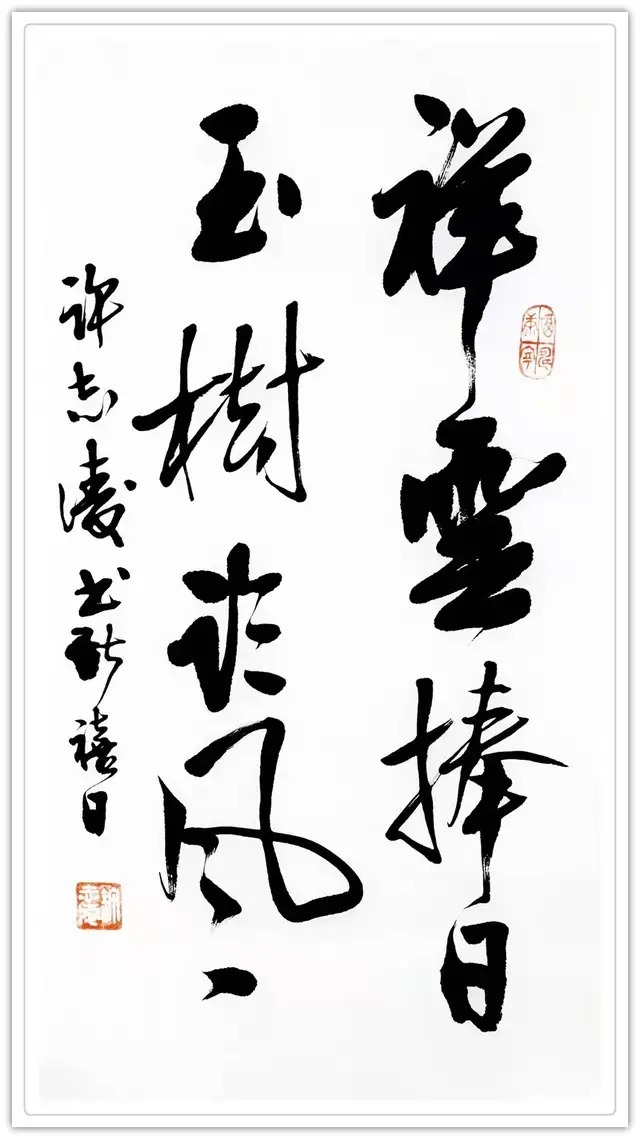 祥雲捧日
玉樹臨風
許志凌书新禧日